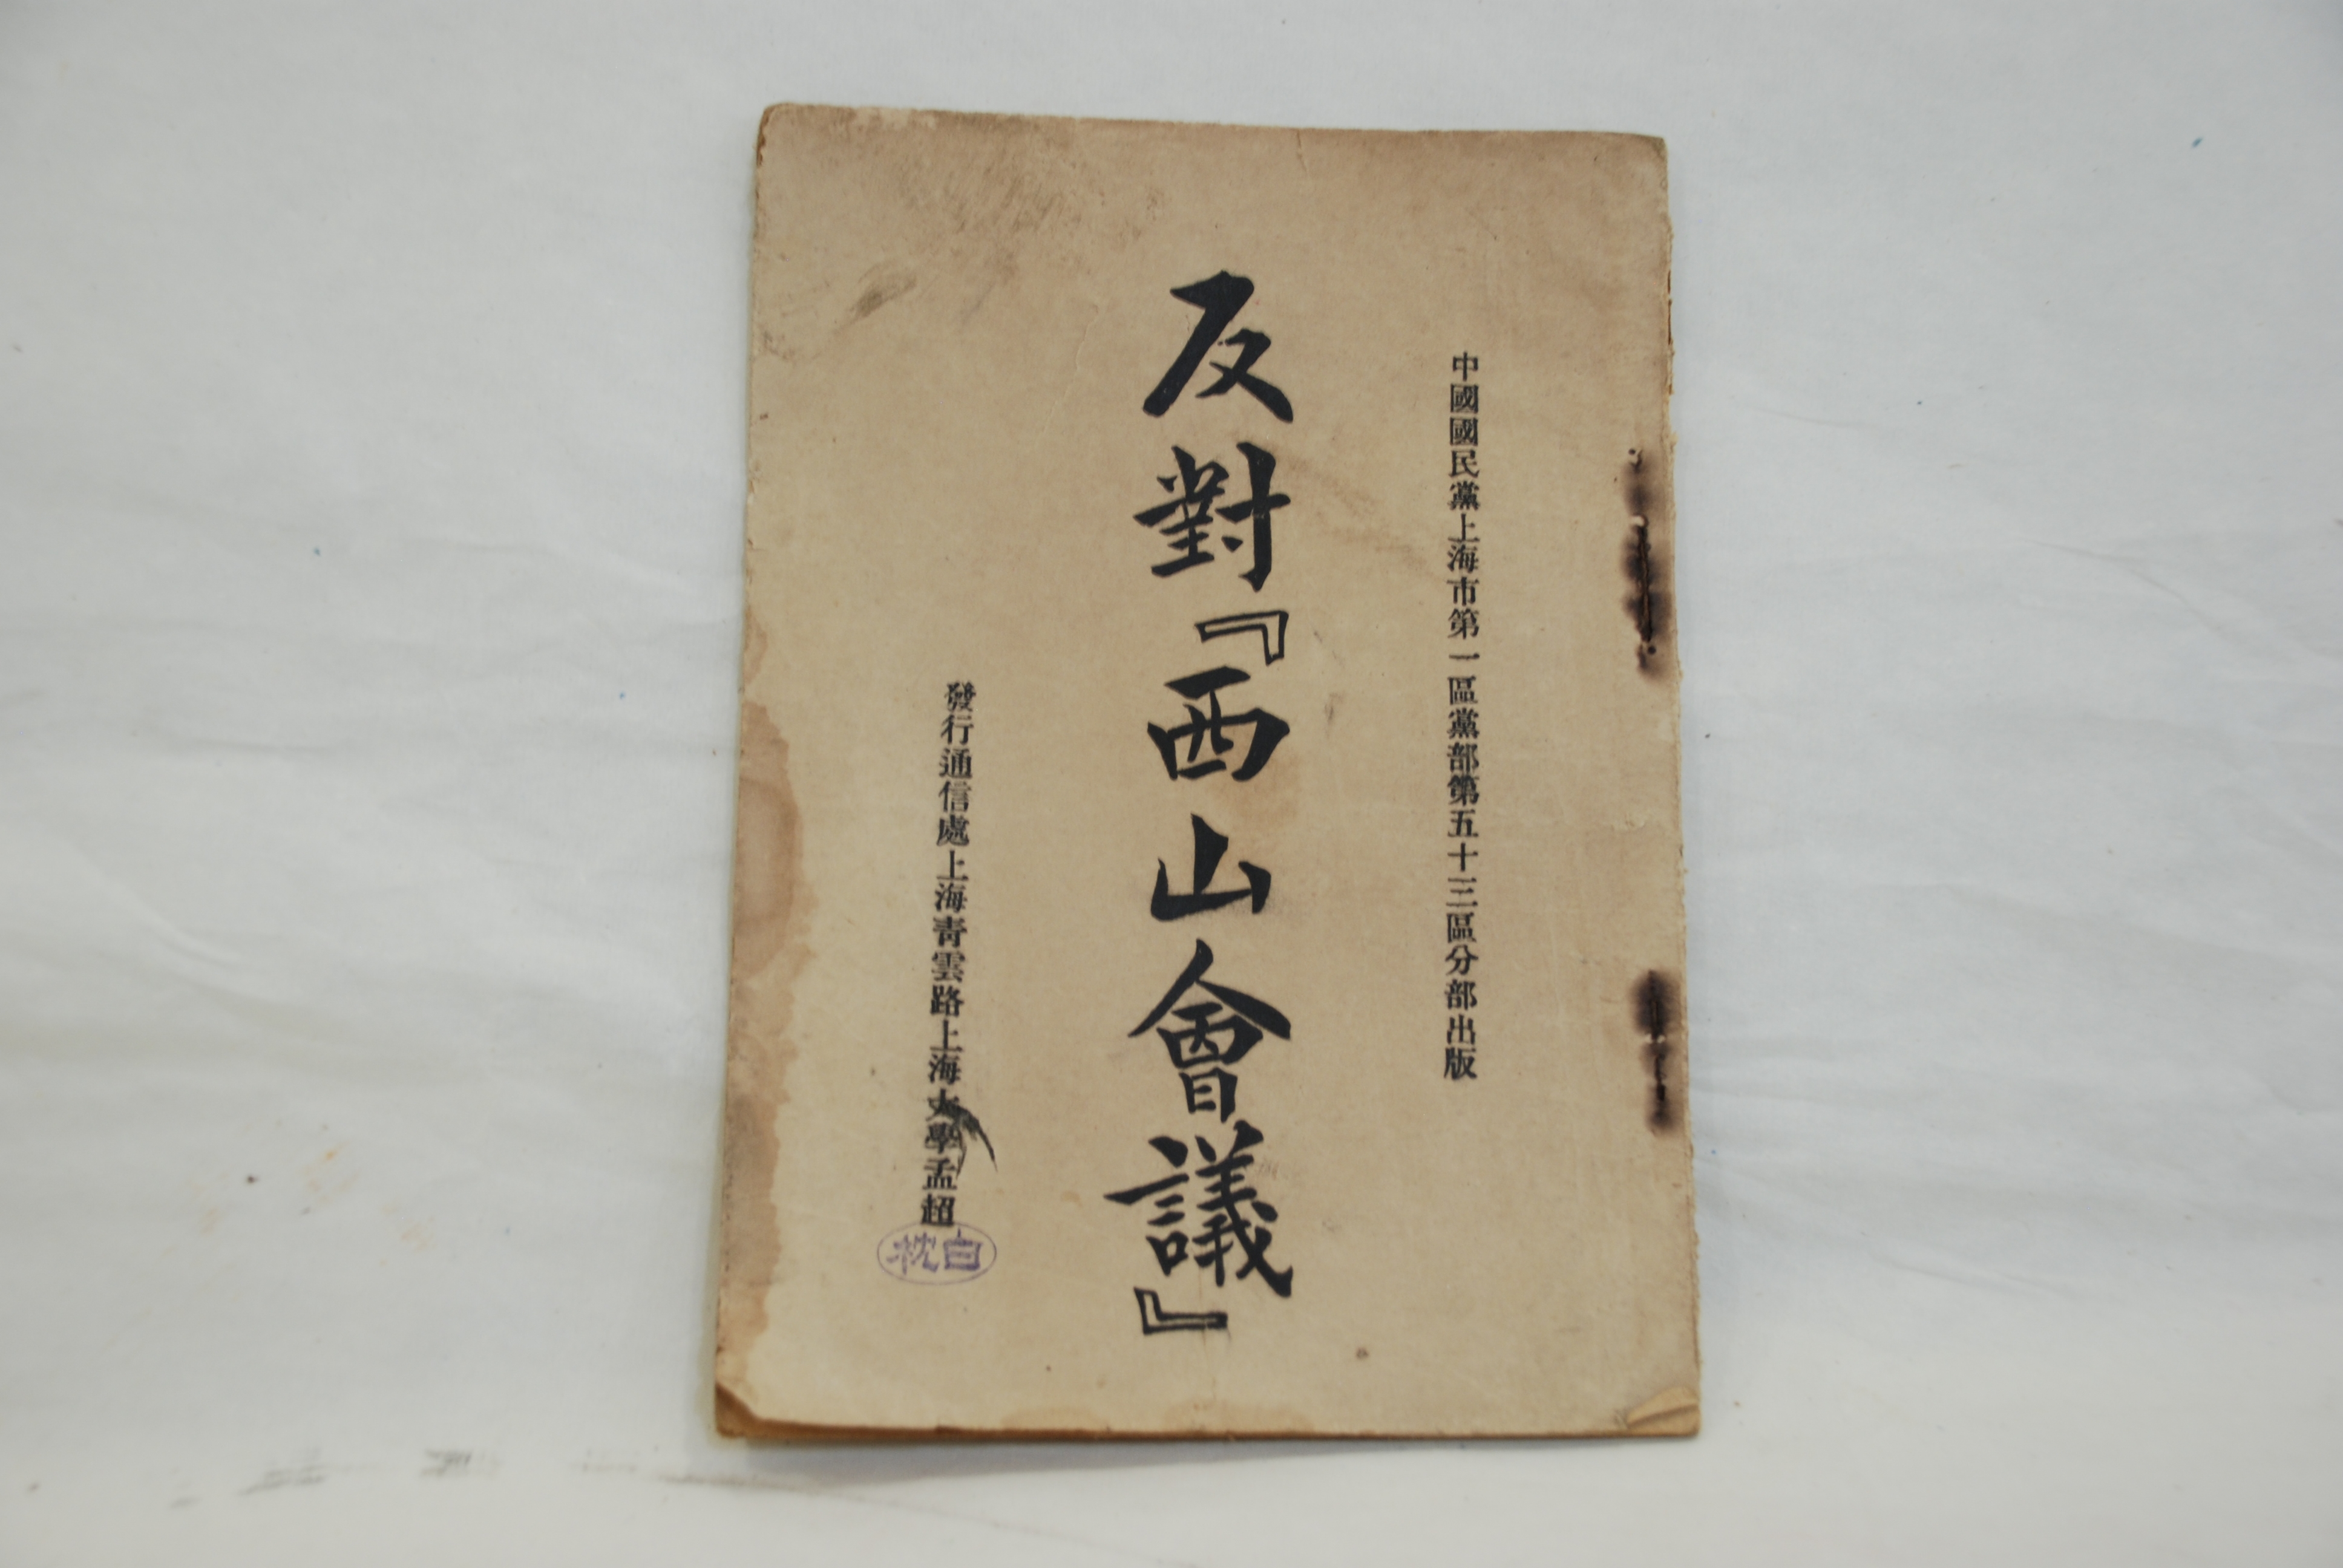 中國國民黨上海市第一區黨部第五十三區分部出版
反對『西山會議』
發行通信處上海青雲路上海大學孟超
白枕